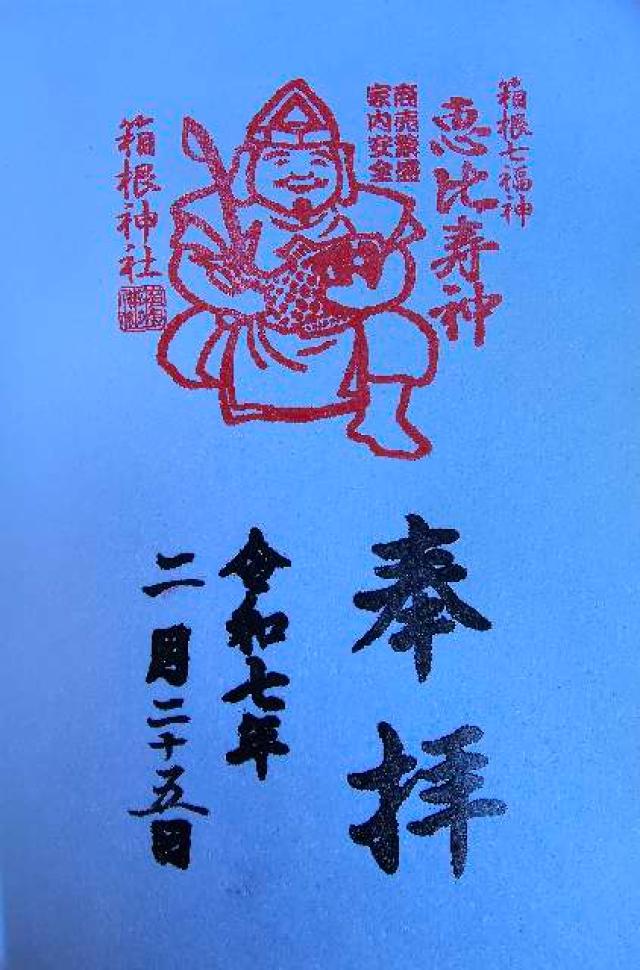 箱根七福神
恵比寿神
商売繁盛
家内安全
箱根神社
奉拝
令和七年
二月二十五日